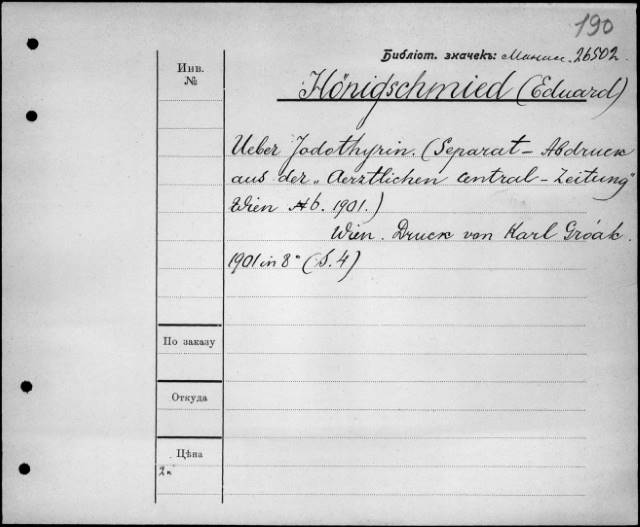 190
Библіот. значекъ: Манас. 26502.
Инв.
№
Hönigschmied (Eduard)
Ueber Jodothyrin. (Separat-Abdruck
aus der „Aerztlichen Central-Zeitung"
Wien № 6. 1901.)
Wien. Druck von Karl Gróák.
1901 in 8° (S. 4)
По заказу
Откуда
Цѣна